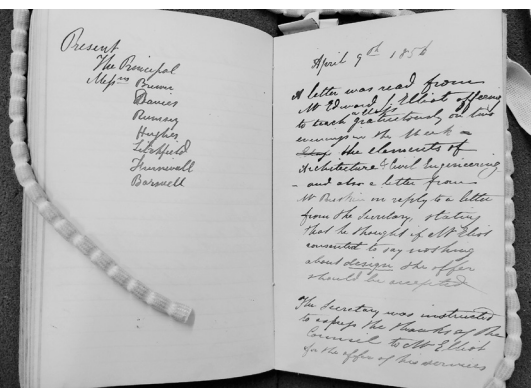 Present
The Principal
Messrs Brewer
Davies
Hughes
Litchfield
Furnivall
April 9th 1856
A letter was read from
Mr Edward Elliot offering
to teach gratuitously on two
evenings in the Week
the elements of
Architecture & Civil Engineering
- and also a letter from
Mr Ruskin in reply to a letter
from the Secretary, stating
that he thought if Mr Elliot
consented to say nothing
about design the offer
should be accepted
The Secretary was instructed
to express the thanks of the
Council to Mr Elliot
for the offer of his services